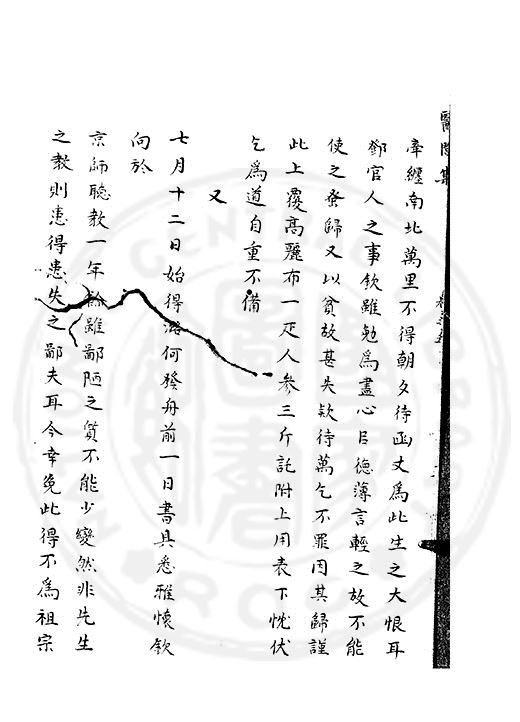 醫閭集
牽纏南北萬里不得朝夕待函丈為此生之大恨耳
鄧官人之事欽雖勉為盡心臣德薄言輕之故不能
使之發歸又以貧故甚失欵待萬乞不罪因其歸謹
此上覆高麗布一疋人參三斤託附上用表下忱伏
乞為道自重不備
又
七月十二日始得潞河發舟前一日書具悉雅懷欽
向於
京師聽教一年餘雖鄙陋之質不能少變然非先生
之教則患得患失之鄙夫耳今幸免此得不為祖宗
CENTRAL